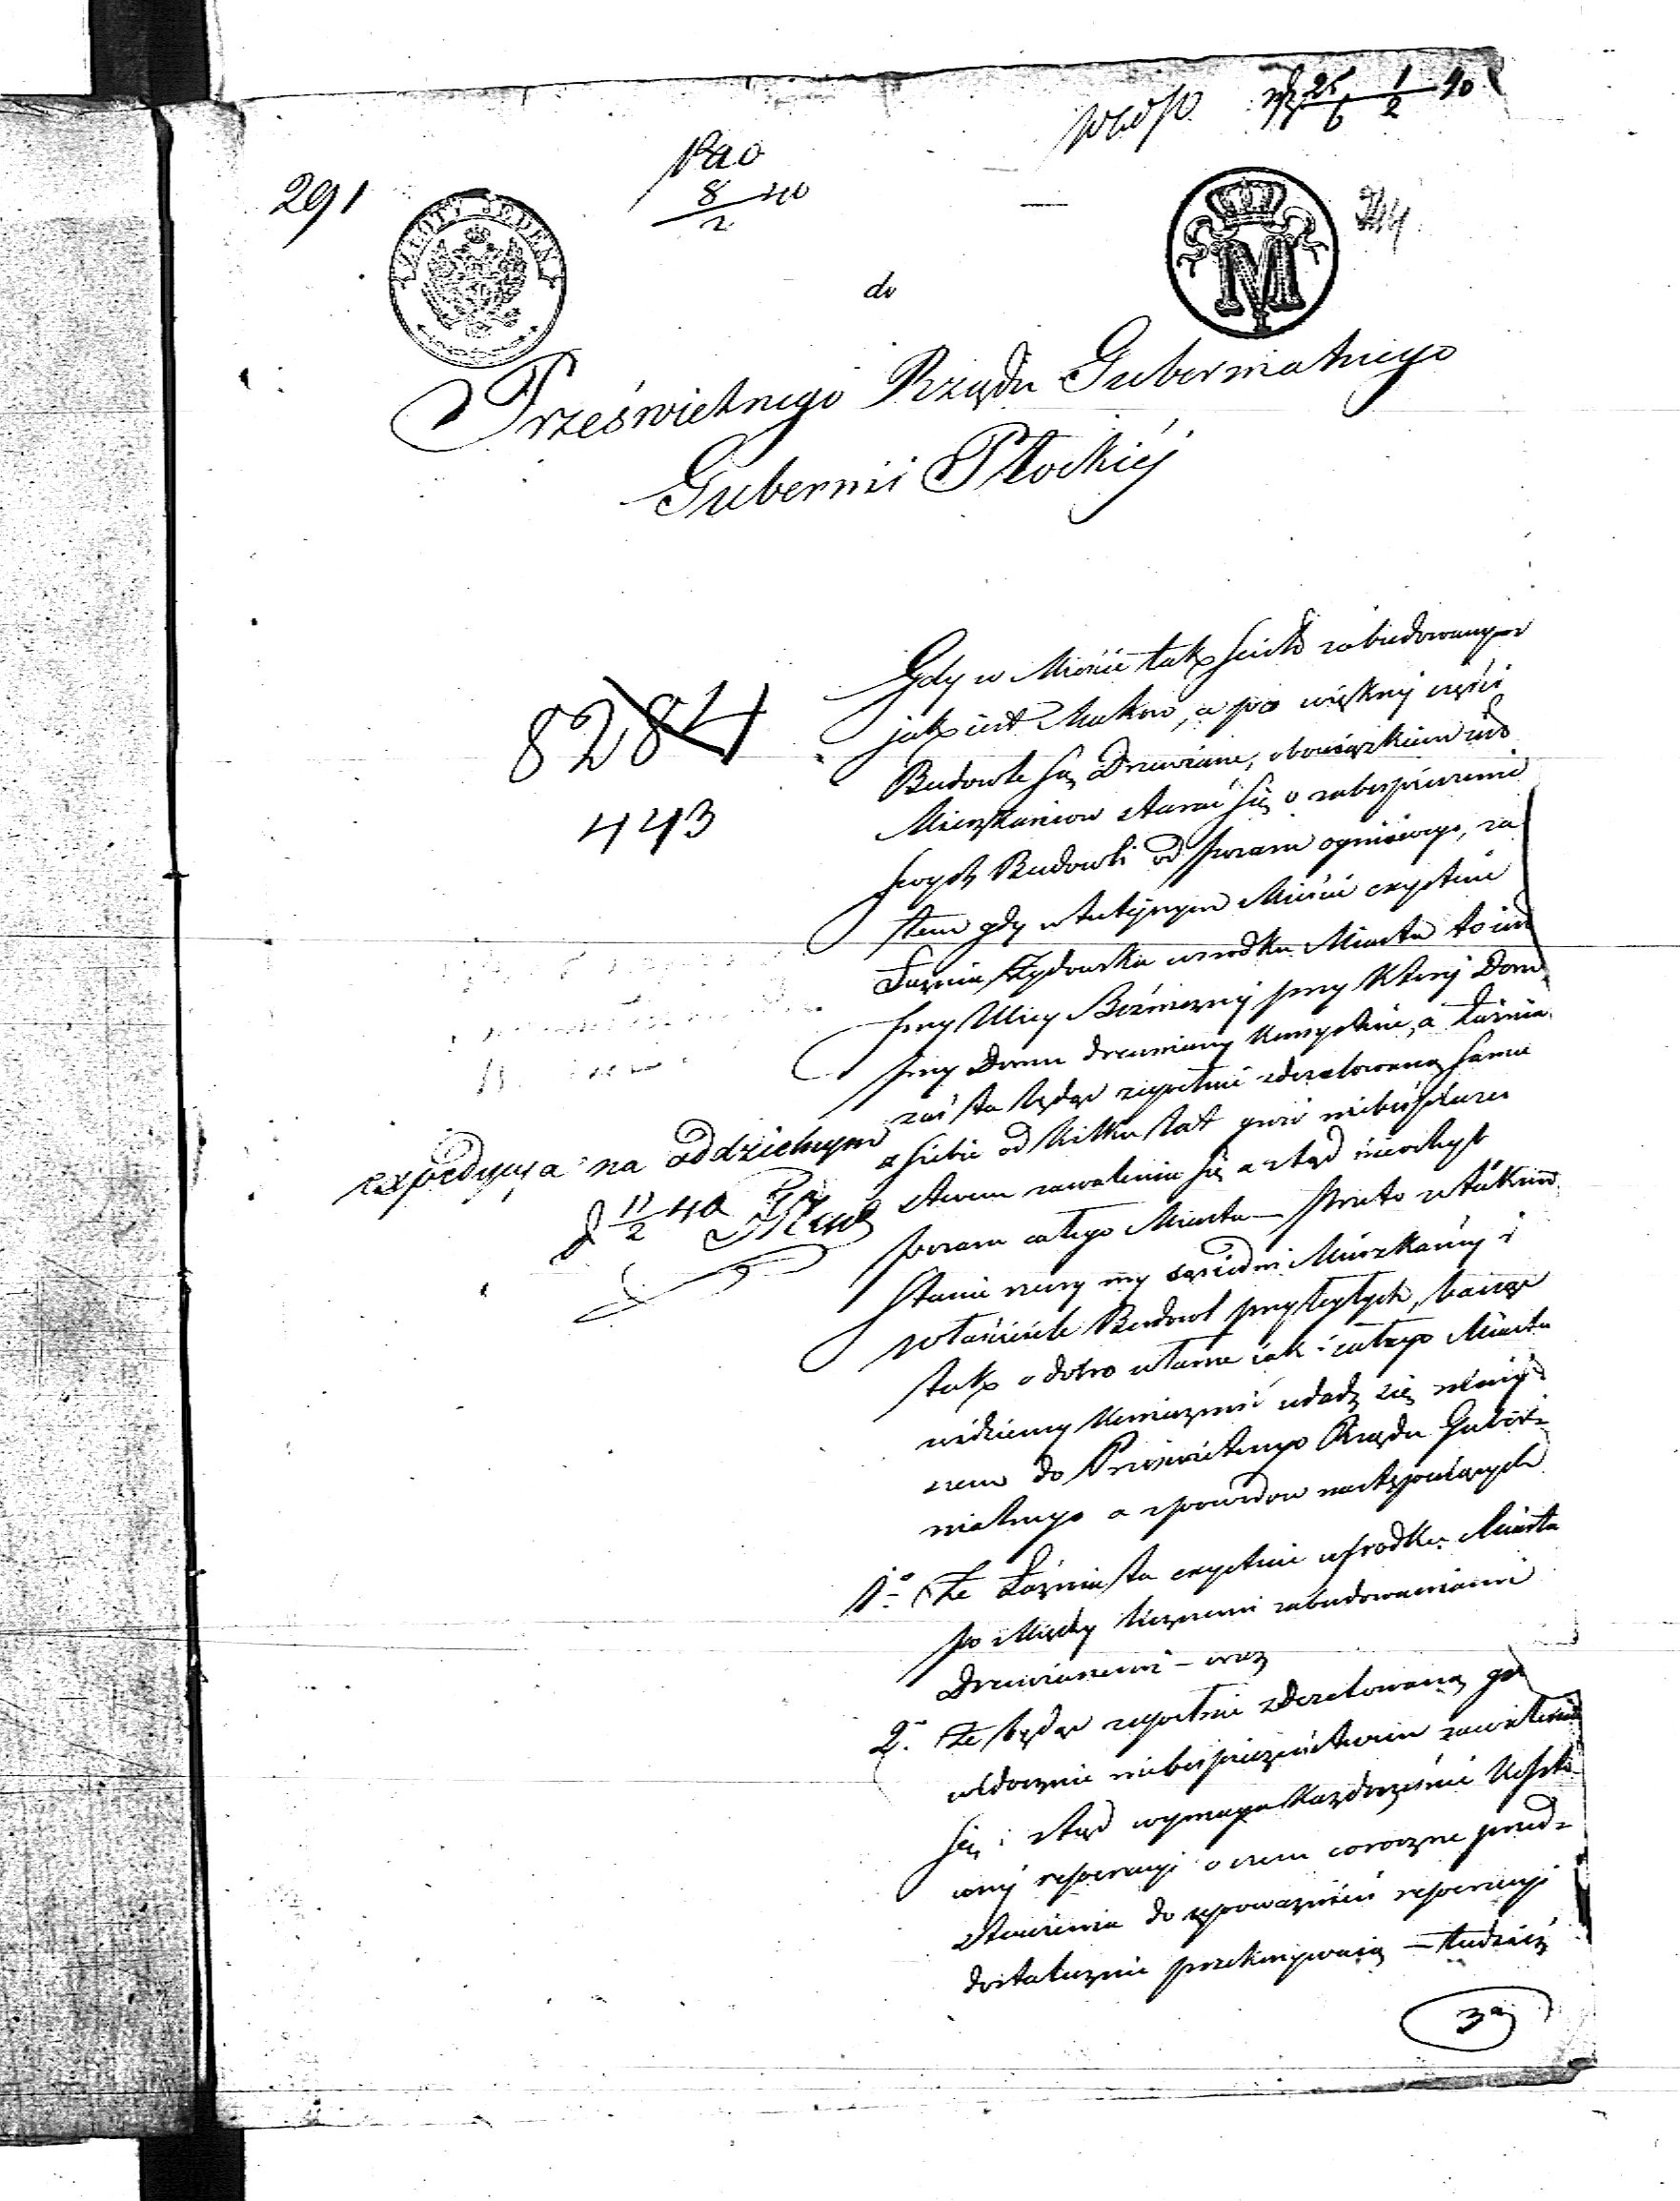 291
8/2 40
25/6 1/2 40
244
ZŁOTY JEDEN
M
do
Prześwietnego Rządu Gubernialnego
Gubernii Płockiéj
8284
443
Gdy w Mieście tak ścisło zabudowanym
jak iest Maków, a po większéj części
Budowle są Drewniane, obowiązkiem iest
Mieszkańców starać się o zabespieczenie
swych Budowli od pożaru ogniowego, za
tem gdy w tutéjszym Mieście exystuie
Łaźnia Żydowska w srodku Miasta to iest
przy Ulicy Bóźniczny przy któréj Dom
przy Domu drewniany exystuie, a Łaźnia
zaś ta będąc zupełnie zdezelowaną sama
z siebie od kilku lat grozi niebespieczeń
stwem zawalenia się a ztąd
pożaru całego Miasta — Przeto w takim
Stanie rzeczy my sąsiedni Mieszkańcy i
właściciele Budowl przyległych, bacząc
tak o dobro własne iak i całego Miasta
widziemy konieczność udadz się
do Prześwietnego Rządu Guber-
nialnego a z powodów następuiących
1º Że Łaźnia ta exystuie w srodku Miasta
po między licznemi zabudowaniami
Drewnianemi — oraz
2. Że będąc zupełnie zdezelowaną
widocznie niebespieczeństwem zawalenia
się i ztąd wymaga każdocześnie koszto-
wnéj reperacyi o czem coroczne przed-
stawienia do reperacyi
dostatecznie przekonywaią — tudzież
expedycya na oddzielnym
d 11/2 40
3º